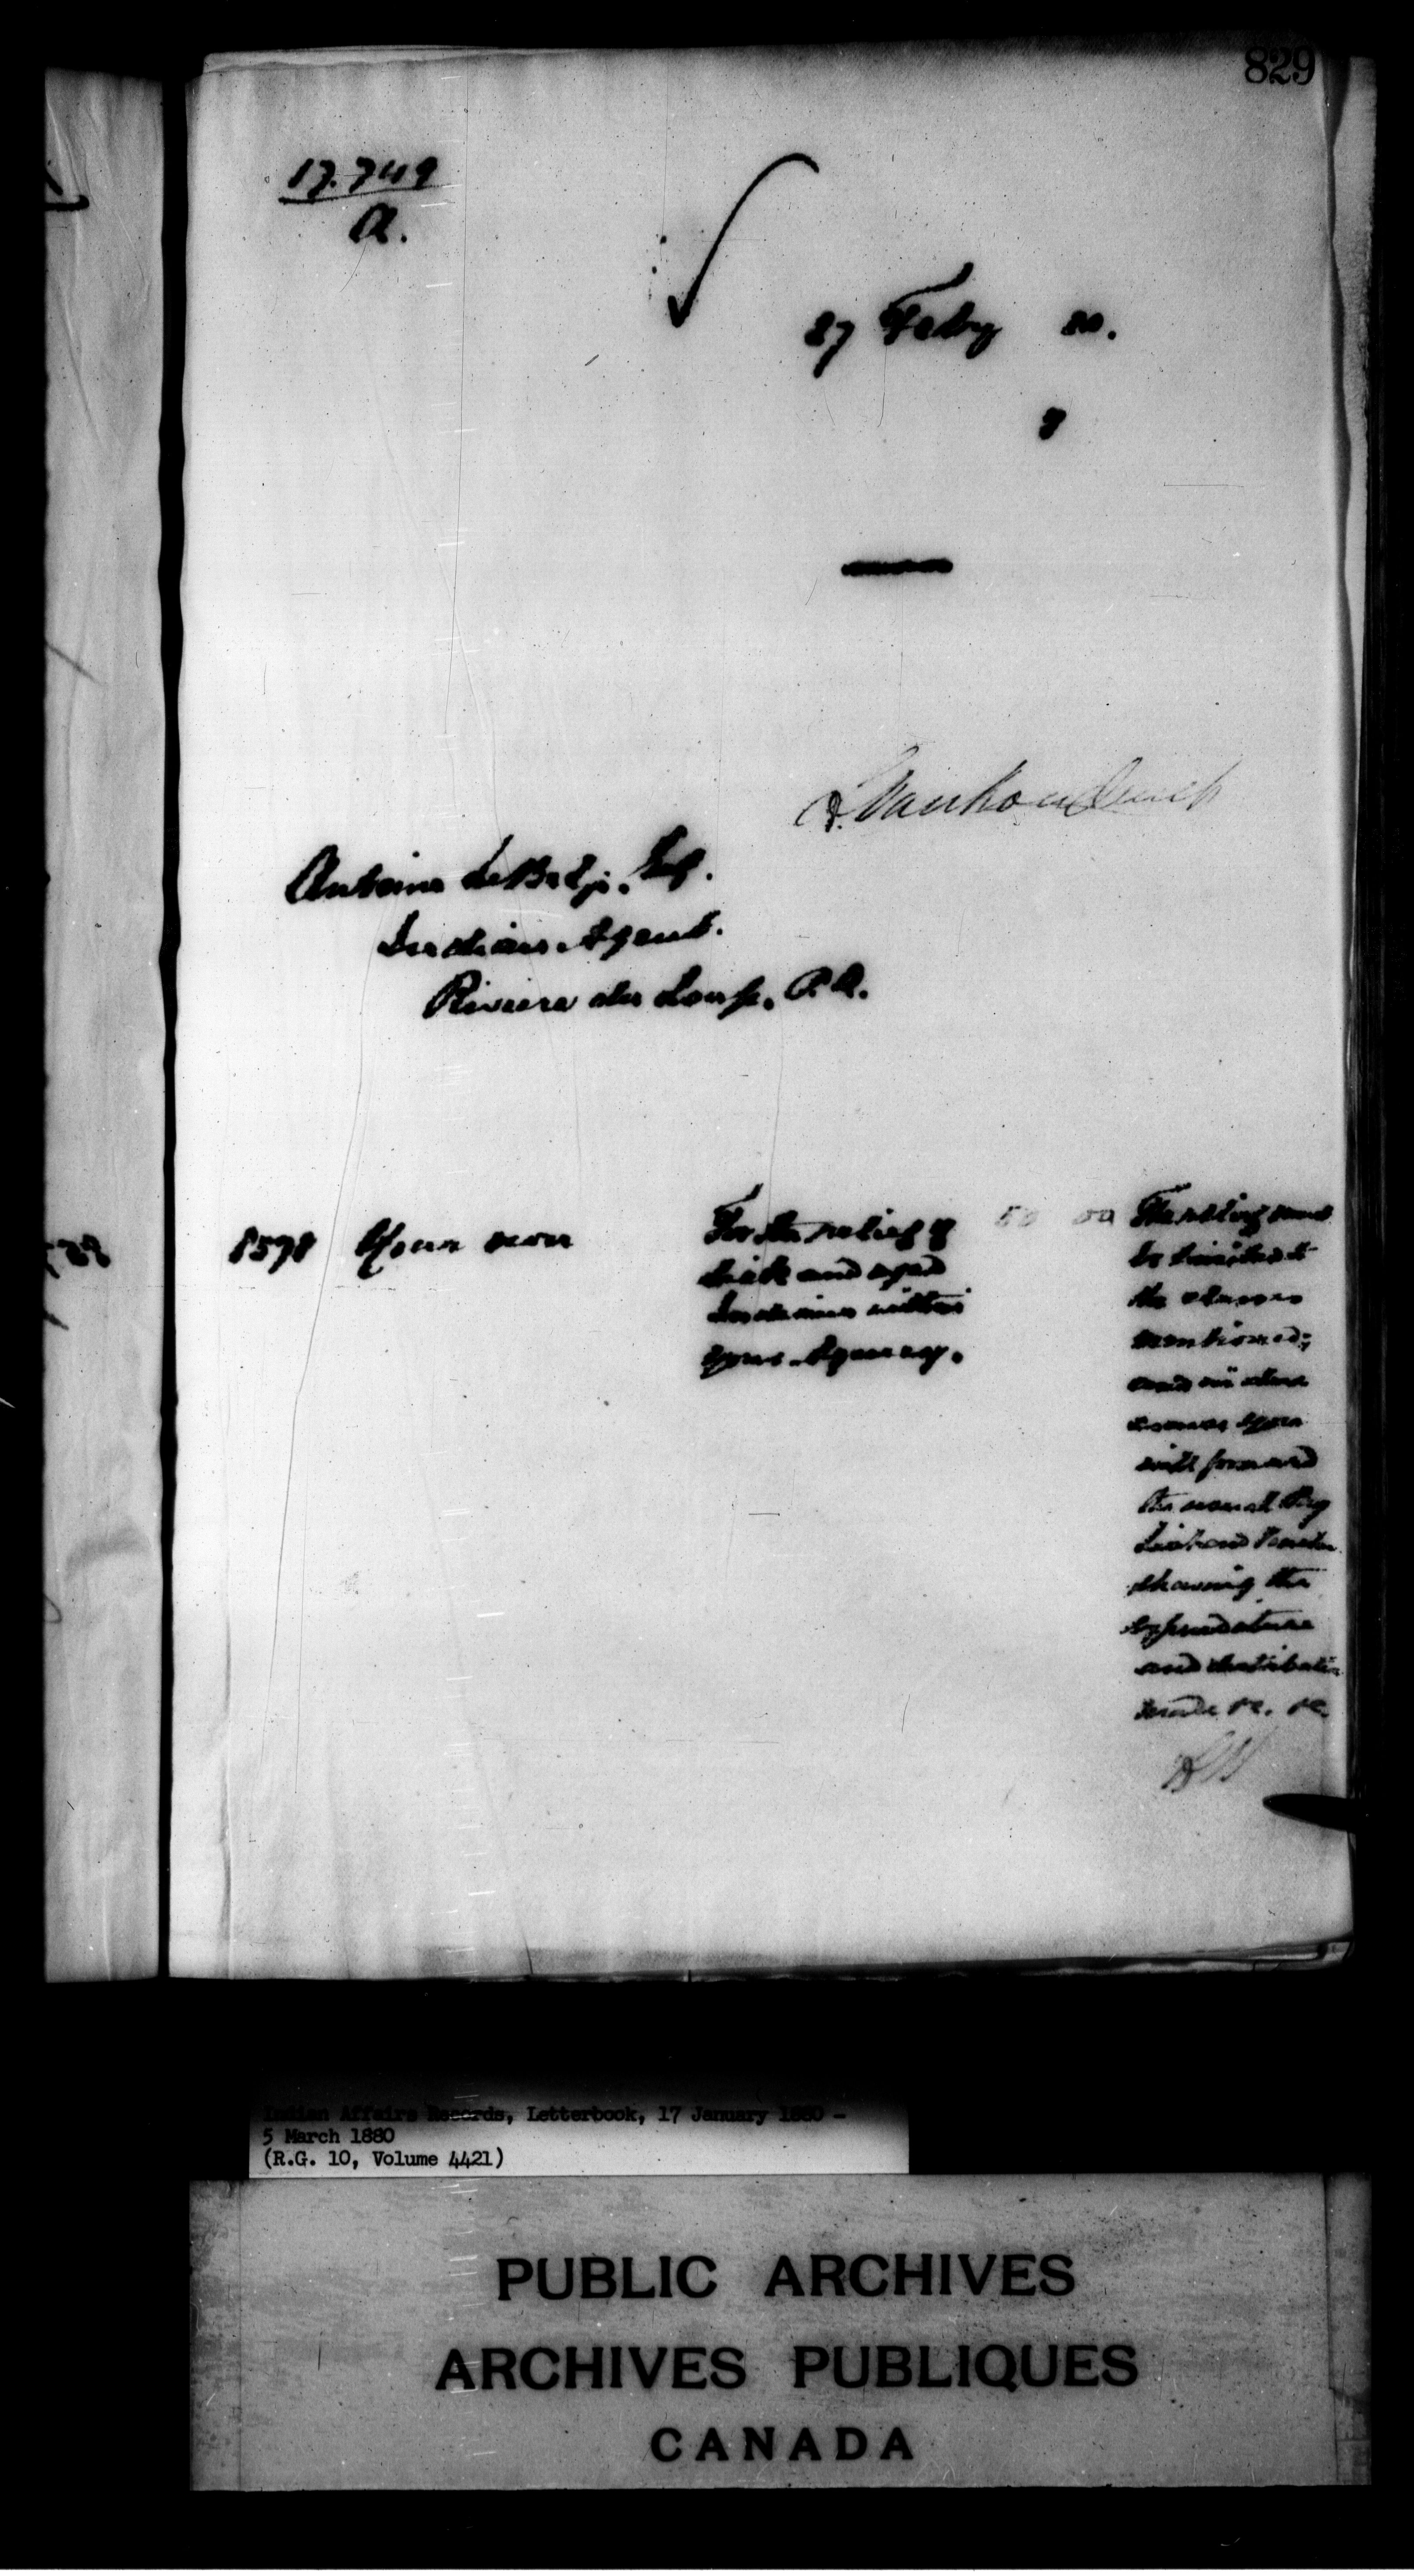 829
17.749
A.
27 Feby 80.
L. Vankoughnet
Antoine LeBel, Esq.
Indian Agent.
Riviere du Loup, P.Q.
8578 Your own
For the relief of
sick and aged
Indians within
your Agency.
50 00
The relief must
be limited to
the classes
mentioned;
and in due
course you
will forward
the usual Pay
List and Voucher
showing the
expenditure
and distribution
made &c. &c.
LV
Indian Affairs Records, Letterbook, 17 January 1880 -
5 March 1880
(R.G. 10, Volume 4421)
PUBLIC ARCHIVES
ARCHIVES PUBLIQUES
CANADA